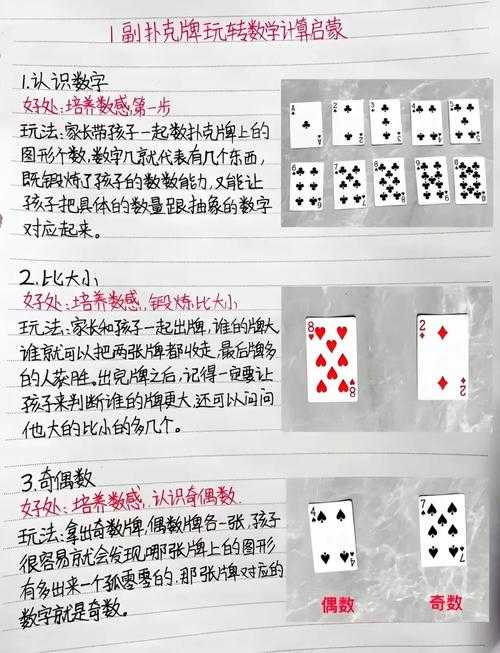 1副扑克牌玩转数学计算启蒙
1.认识数字
好处:培养数感第一步
玩法:家长带孩子一起数扑克牌上的
图形个数,数字几就代表有几个东西,
既锻炼了孩子的数数能力,又能让
孩子把具体的数量跟抽象的数字
对应起来。
2.比大小
好处:培养数感,锻炼比大小
玩法:家长和孩子一起出牌,谁的牌大
谁就可以把两张牌都收走,最后牌多
的人获胜。出完牌之后,记得一定要让
孩子来判断谁的牌更大,还可以问问
他大的比小的多几个。
8
8
2
2
3.奇偶数
好处:培养数感,认识奇偶数.
玩法:拿出奇数牌,偶数牌各一张,孩子
很容易就会发现,哪张牌上的图形
有多出来一个孤零零的,那张牌对应的
数字就是奇数。
4
4
7
7
偶数
奇数